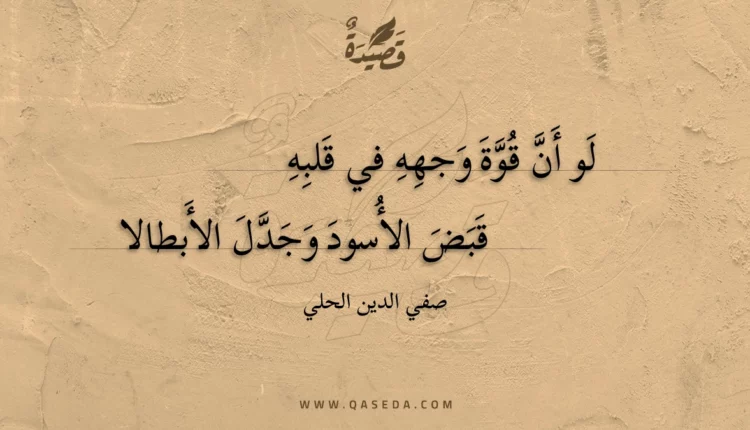 قَصِيدَةٌ
لَو أَنَّ قُوَّةَ وَجهِهِ في قَلبِهِ
قَبَضَ الأُسودَ وَجَدَّلَ الأَبطالا
صفي الدين الحلي
WWW.QASEDA.COM